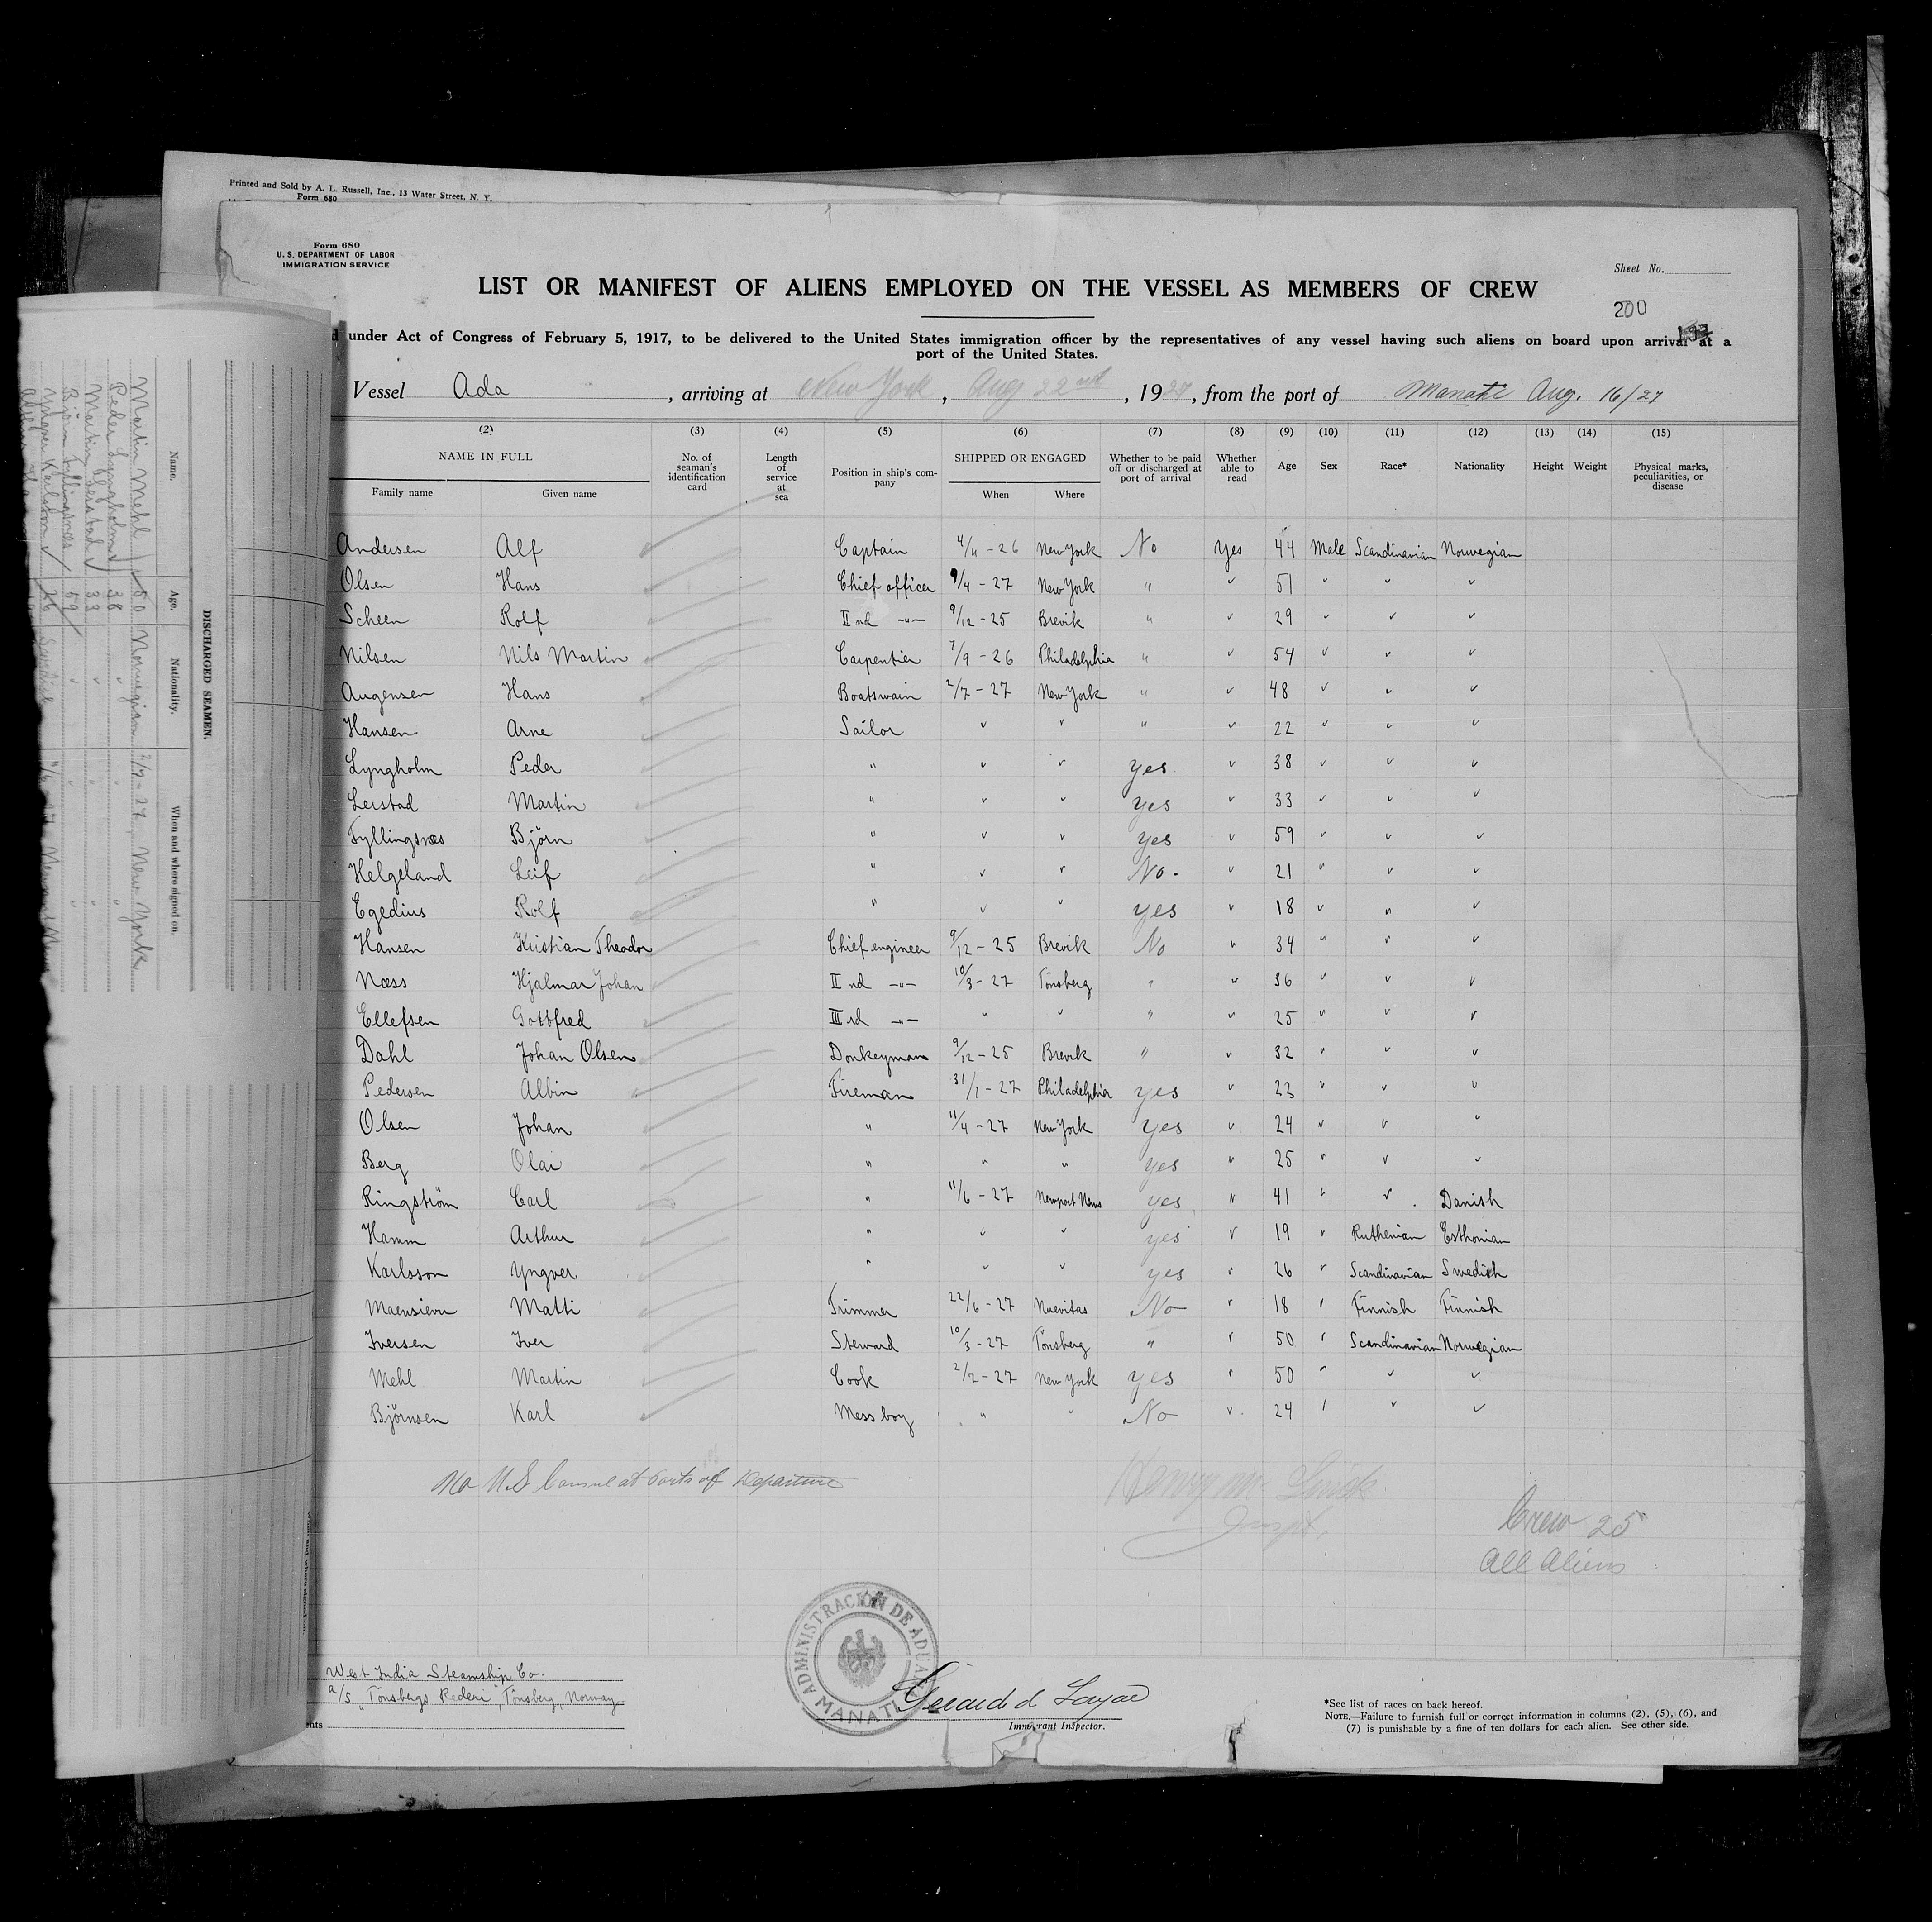 Printed and Sold by A. L. Russell, Inc., 13 Water Street, N. Y.
Form 680
Form 680
U. S. DEPARTMENT OF LABOR
IMMIGRATION SERVICE
Sheet No.
LIST OR MANIFEST OF ALIENS EMPLOYED ON THE VESSEL AS MEMBERS OF CREW
200
under Act of Congress of February 5, 1917, to be delivered to the United States immigration officer by the representatives of any vessel having such aliens on board upon arrival at a
port of the United States.
Vessel Ada , arriving at New York , Aug 22nd , 1927, from the port of Manati Aug. 16/27
(2) (3) (4) (5) (6) (7) (8) (9) (10) (11) (12) (13) (14) (15)
NAME IN FULL No. of seaman's identification card Length of service at sea Position in ship's company SHIPPED OR ENGAGED Whether to be paid off or discharged at port of arrival Whether able to read Age Sex Race* Nationality Height Weight Physical marks, peculiarities, or disease
Family name Given name When Where
Andersen Alf Captain 4/11 - 26 New York No Yes 44 Male Scandinavian Norwegian
Olsen Hans Chief officer 9/4 - 27 New York " " 51 " " "
Scheen Rolf II nd -"- 9/12 - 25 Brevik " " 29 " " "
Nilsen Nils Martin Carpentier 7/9 - 26 Philadelphia " " 54 " " "
Augensen Hans Boatswain 2/7 - 27 New York " " 48 " " "
Hansen Arne Sailor " " " " 22 " " "
Lyngholm Peder " " " yes " 38 " " "
Lerstad Martin " " " yes " 33 " " "
Fyllingsnæs Björn " " " yes " 59 " " "
Helgeland Leif " " " No. " 21 " " "
Egedius Rolf " " " yes " 18 " " "
Hansen Kristian Theodor Chief engineer 9/12 - 25 Brevik No " 34 " " "
Næss Hjalmar Johan II nd -"- 10/3 - 27 Tönsberg " " 36 " " "
Ellefsen Gottfred III rd -"- " " " " 25 " " "
Dahl Johan Olsen Donkeyman 9/12 - 25 Brevik " " 32 " " "
Pedersen Albin Fireman 31/1 - 27 Philadelphia yes " 22 " " "
Olsen Johan " 11/4 - 27 New York yes " 24 " " "
Berg Olai " " " yes " 25 " " "
Ringström Carl " 11/6 - 27 Newport News yes " 41 " " Danish
Hamm Arthur " " " yes " 19 " Ruthenian Esthonian
Karlsson Yngver " " " yes " 26 " Scandinavian Swedish
Matti Trimmer 22/6 - 27 Nuevitas No " 18 " Finnish Finnish
Iversen Iver Steward 10/3 - 27 Tönsberg " " 50 " Scandinavian Norwegian
Mehl Martin Cook 2/7 - 27 New York yes " 50 " " "
Björnsen Karl Mess boy " " No " 24 " " "
No U.S Consul at Ports of Departure
Henry M.
Inspt.
Crew 25
All Aliens
ADMINISTRACIÓN DE ADUANA
MANATI
West India Steamship Co.
A/S "Tönsbergs Rederi", Tönsberg, Norway
Immigrant Inspector.
*See list of races on back hereof.
NOTE.—Failure to furnish full or correct information in columns (2), (5), (6), and
(7) is punishable by a fine of ten dollars for each alien. See other side.
DISCHARGED SEAMEN.
Name. Age. Nationality. When and where signed on.
Martin Mehl 50 Norwegian 2/7 - 27, New York
Peder Lyngholm 38 " " "
Martin Lerstad 33 " " "
Björn Fyllingsnæs 59 " " "
Yngver Karlsson 26 Swedish